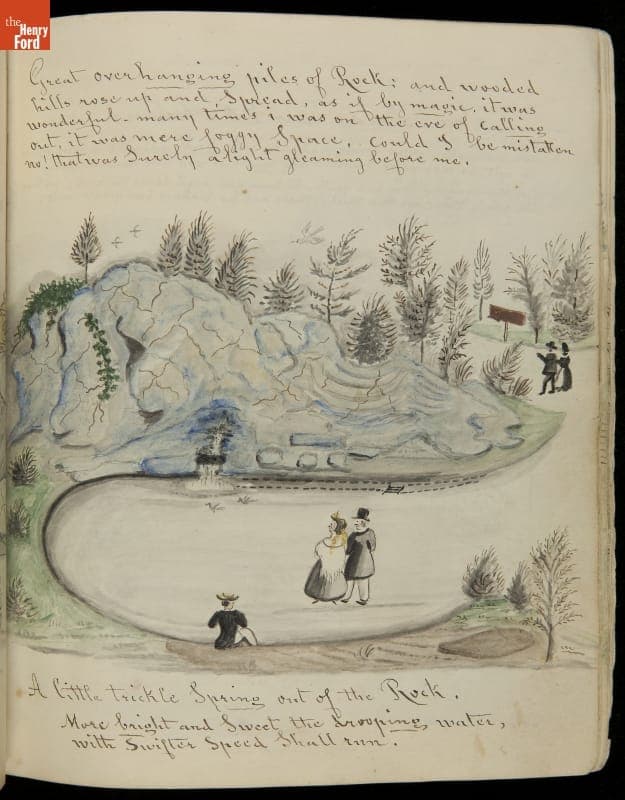 the
Henry
Ford
Great overhanging piles of Rock: and wooded
hills rose up and, Spread, as if by magic. it was
wonderful. many times i was on the eve of calling
out, it was mere foggy Space. could I be mistaken
no! that was Surely a light gleaming before me.
A little trickle Spring out of the Rock.
More bright and Sweet the drooping water,
with Swifter Speed Shall run.